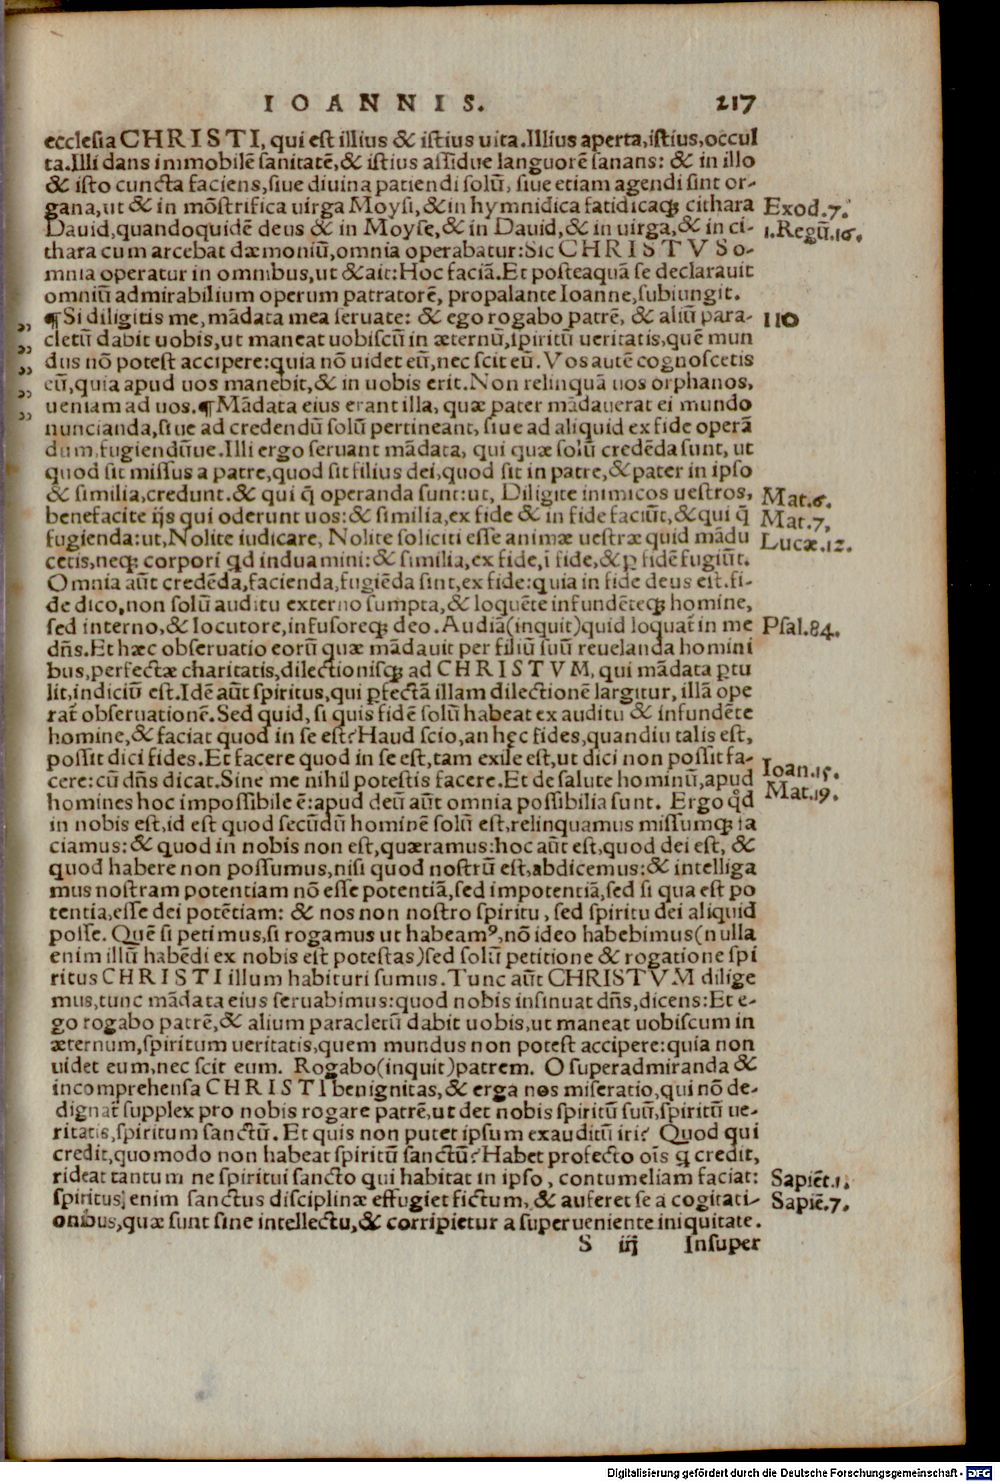 IOANNIS. 217
ecclesia CHRISTI, qui est illius & istius uita. Illius aperta, istius, occul
ta. Illi dans immobilē sanitatē, & istius assidue languorē sanans: & in illo
& isto cuncta faciens, siue diuina patiendi solū, siue etiam agendi sint or-
gana, ut & in mōstrifica uirga Moysi, & in hymnidica fatidicaq; cithara Exod.7.
Dauid, quandoquidē deus & in Moyse, & in Dauid, & in uirga, & in ci- 1.Regū.16.
thara cum arcebat dæmoniū, omnia operabatur: Sic CHRISTVS o-
mnia operatur in omnibus, ut & ait: Hoc faciā. Et posteaquā se declarauit
omniū admirabilium operum patratorē, propalante Ioanne, subiungit.
„ ¶ Si diligitis me, mādata mea seruate: & ego rogabo patrē, & aliū para- 110
„ cletū dabit uobis, ut maneat uobiscū in æternū, spiritū ueritatis, quē mun
„ dus nō potest accipere: quia nō uidet eū, nec scit eū. Vos autē cognoscetis
„ eū, quia apud uos manebit, & in uobis erit. Non relinquā uos orphanos,
„ ueniam ad uos. ¶ Mādata eius erant illa, quæ pater mādauerat ei mundo
nuncianda, siue ad credendū solū pertineant, siue ad aliquid ex fide operā
dum, fugiendūue. Illi ergo seruant mādata, qui quæ solū credēda sunt, ut
quod sit missus a patre, quod sit filius dei, quod sit in patre, & pater in ipso
& similia, credunt. & qui q̄ operanda sunt: ut, Diligite inimicos uestros, Mat.6.
benefacite ijs qui oderunt uos: & similia, ex fide & in fide faciūt, & qui q̄ Mat.7,
fugienda: ut, Nolite iudicare, Nolite soliciti esse animæ uestræ quid mādu Lucæ.12.
cetis, neq; corpori qd induamini: & similia, ex fide, ī fide, & ꝑ fidē fugiūt.
Omnia aūt credēda, facienda, fugiēda sint, ex fide: quia in fide deus est. fi-
de dico, non solū auditu externo sumpta, & loquēte infundēteq; homine,
sed interno, & locutore, infusoreq; deo. Audiā (inquit) quid loquat̄ in me Psal.84.
dn̄s. Et hæc obseruatio eorū quæ mādauit per filiū suū reuelanda homini
bus, perfectæ charitatis, dilectionisq; ad CHRISTVM, qui mādata ꝓtu
lit, indiciū est. Idē aūt spiritus, qui ꝑfectā illam dilectionē largitur, illā ope
rat̄ obseruationē. Sed quid, si quis fidē solū habeat ex auditu & infundēte
homine, & faciat quod in se est? Haud scio, an hęc fides, quandiu talis est,
possit dici fides. Et facere quod in se est, tam exile est, ut dici non possit fa-
cere: cū dn̄s dicat. Sine me nihil potestis facere. Et de salute hominū, apud Ioan.15.
homines hoc impossibile ē: apud deū aūt omnia possibilia sunt. Ergo qd Mat.19.
in nobis est, id est quod secūdū hominē solū est, relinquamus missumq; fa
ciamus: & quod in nobis non est, quæramus: hoc aūt est, quod dei est, &
quod habere non possumus, nisi quod nostrū est, abdicemus: & intelliga
mus nostram potentiam nō esse potentiā, sed impotentiā, sed si qua est po
tentia, esse dei potētiam: & nos non nostro spiritu, sed spiritu dei aliquid
posse. Quē si petimus, si rogamus ut habeamꝰ, nō ideo habebimus (nulla
enim illū habēdi ex nobis est potestas) sed solū petitione & rogatione spi
ritus CHRISTI illum habituri sumus. Tunc aūt CHRISTVM dilige
mus, tunc mādata eius seruabimus: quod nobis insinuat dn̄s, dicens: Et e-
go rogabo patrē, & alium paracletū dabit uobis, ut maneat uobiscum in
æternum, spiritum ueritatis, quem mundus non potest accipere: quia non
uidet eum, nec scit eum. Rogabo (inquit) patrem. O superadmiranda &
incomprehensa CHRISTI benignitas, & erga nos miseratio, qui nō de-
dignat̄ supplex pro nobis rogare patrē, ut det nobis spiritū suū, spiritū ue-
ritatis, spiritum sanctū. Et quis non putet ipsum exauditū iri? Quod qui
credit, quomodo non habeat spiritū sanctū? Habet profecto oīs q credit,
rideat tantum ne spiritui sancto qui habitat in ipso, contumeliam faciat: Sapiēt.1.
spiritus enim sanctus disciplinæ effugiet fictum, & auferet se a cogitati- Sapiē.7.
onibus, quæ sunt sine intellectu, & corripietur a superueniente iniquitate.
S iij Insuper
Digitalisierung gefördert durch die Deutsche Forschungsgemeinschaft - DFG